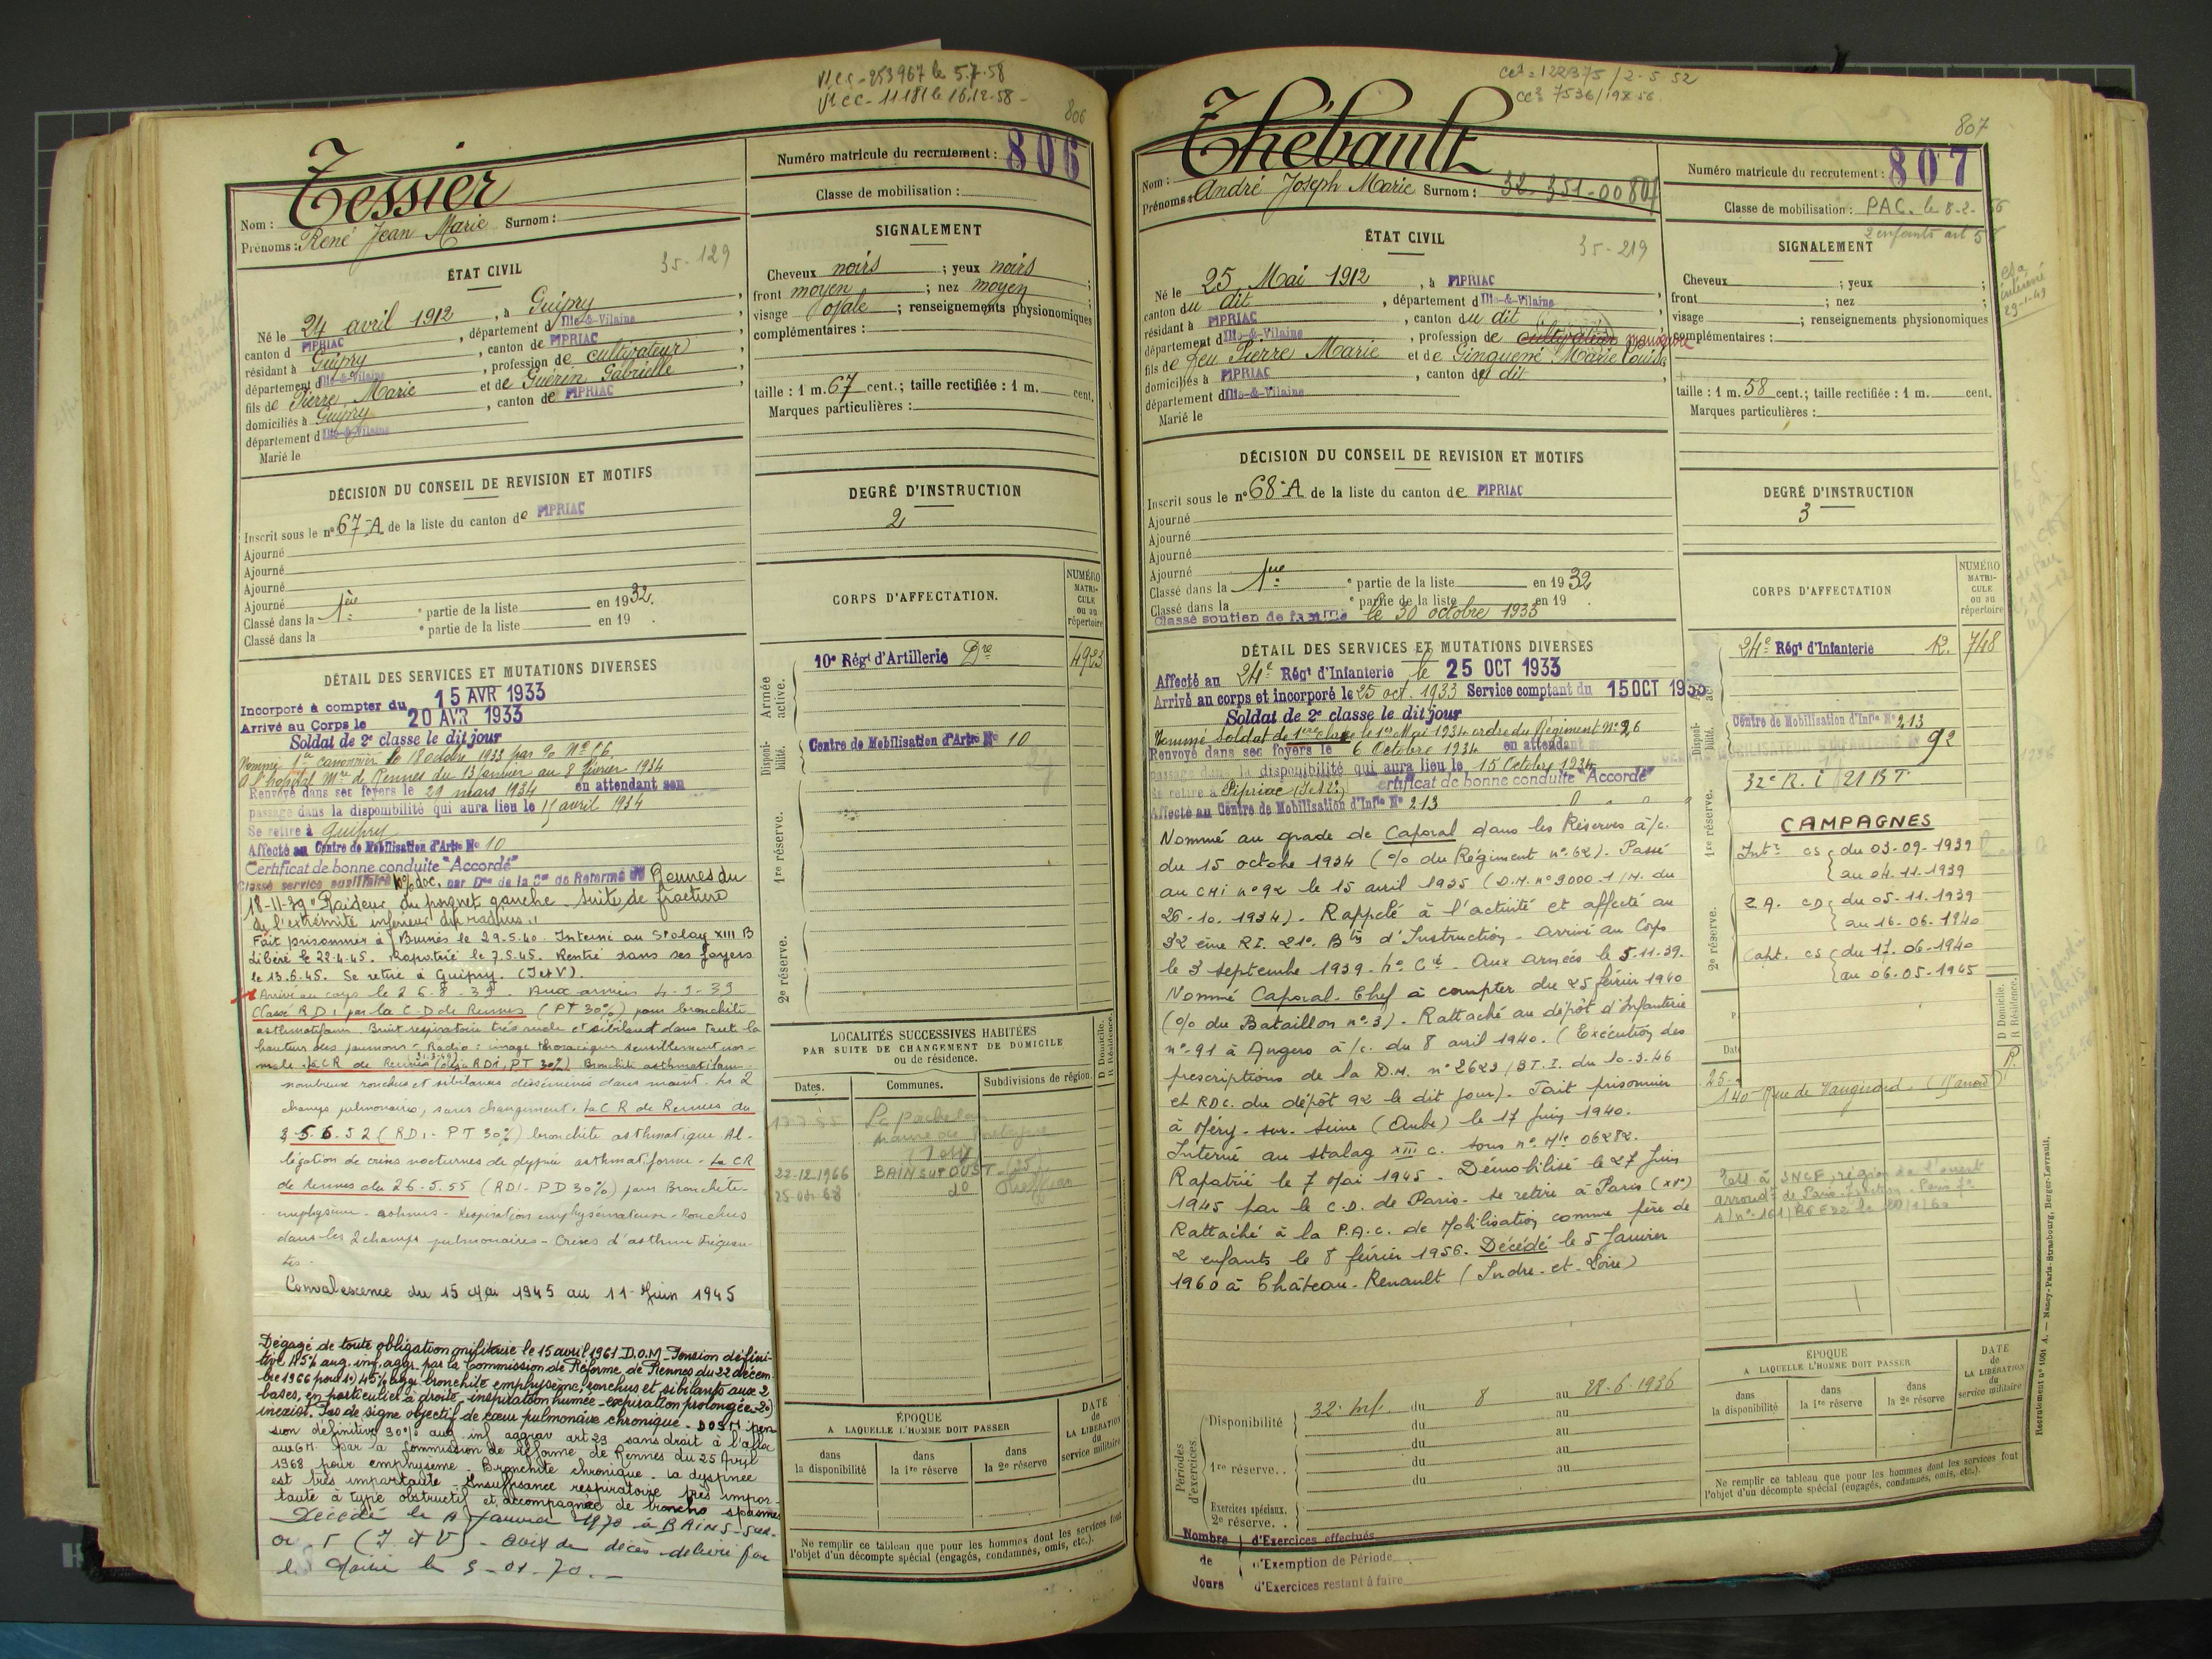 vl cc - 253967 le 5.7.58
vl cc - 11181 le 16.12.58 -
806
Tessier
Nom :
Prénoms : René Jean Marie Surnom :
35-129
ÉTAT CIVIL
Né le 24 avril 1912, à Guipry,
canton d PIPRIAC, département d Ille-&-Vilaine
résidant à Guipry, canton de PIPRIAC,
département d Ille-&-Vilaine, profession de cultivateur,
fils de Pierre Marie et de Guérin Gabrielle,
domiciliés à Guipry, canton de PIPRIAC,
département d Ille-&-Vilaine
Marié le
DÉCISION DU CONSEIL DE REVISION ET MOTIFS
Inscrit sous le n° 67-A de la liste du canton de PIPRIAC
Ajourné
Ajourné
Ajourné
Ajourné
Classé dans la 1ère e partie de la liste en 1932.
Classé dans la e partie de la liste en 19 .
DÉTAIL DES SERVICES ET MUTATIONS DIVERSES
Incorporé à compter du 15 AVR 1933
Arrivé au Corps le 20 AVR 1933
Soldat de 2e classe le dit jour
Nommé 1er canonnier le 18 octobre 1933 par % N° 86.
A l'hopital Mre de Rennes du 13 janvier au 8 février 1934
Renvoyé dans ses foyers le 29 mars 1934 en attendant son
passage dans la disponibilité qui aura lieu le 15 avril 1934
Se retire à Guipry
Affecté au Centre de Mobilisation d'Artie No 10
Certificat de bonne conduite "Accordé"
Classé service auxiliaire 10% doc. par Don de la Con de Réforme de Rennes du
18-11-39 "Raideur du poignet gauche - suite de fracture
de l'extrémité inférieur du radius."
Fait prisonnier à Burnes le 29.5.40. Interné au Stalag XIII B
Libéré le 22-4-45. Rapatrié le 7.5.45. Rentré dans ses foyers
le 13.6.45. Se retire à Guipry. (I et V).
Arrivé au corps le 26-8-39. Aux armées 4-9-39
Classé RD1 par la C-D de Rennes (PT 30%) pour bronchite
asthmatiforme. Bruit respiratoire très rude et sibilant dans toute la
hauteur des poumons - Radio : image thoracique sensiblement nor-
male. La CR de Rennes (RD1, PT 30%) Bronchite asthmatiforme
nombreux ronchus et sibilances disséminés dans les 2
champs pulmonaires, sans changement. La CR de Rennes du
35.6.52 (RD1 - PT 30%) bronchite asthmatique Al-
légation de crises nocturnes de dypnée asthmatiforme - La CR
de Rennes du 26-5.55 (RD1 - PD 30%) pour Bronchite-
emphysème - asthmes - Respiration emphysémateuse - Ronchus
dans les 2 champs pulmonaires - Crises d'asthme fréquen-
tes -
Convalescence du 15 Mai 1945 au 11 Juin 1945
Dégagé de toute obligation militaire le 15 avril 1961 D.O.M - Pension défini-
tive 45% aug. inf. aggr. par la Commission de Réforme de Rennes du 22 décem-
bre 1966 pour 1°) 45% aggr bronchite emphysème, ronchus et sibilants aux 2
bases, en particulier à droite - inspiration humée - expiration prolongée - 2°)
inexist. Pas de signe objectif de cœur pulmonaire chronique - DOSM : pen-
sion définitive 90% aug. inf. aggrav art 29 sans droit à l'alloc
aux GM. par la Commission de Réforme de Rennes du 25 Avril
1968 pour emphysème - Bronchite chronique - La dyspnée
est très importante - Insuffisance respiratoire très impor-
tante à type obstructif et accompagnée de broncho spasmes
Décédé le janvier 1970 à BAINS-sur-
(I. et V) - avis de décès delivré par
la Mairie le 5-01-70. -
Numéro matricule du recrutement : 806
Classe de mobilisation :
SIGNALEMENT
Cheveux noirs ; yeux noirs ;
front moyen ; nez moyen ;
visage ovale ; renseignements physionomiques
complémentaires :
taille : 1 m. 67 cent. ; taille rectifiée : 1 m. cent.
Marques particulières :
DEGRÉ D'INSTRUCTION
2
CORPS D'AFFECTATION.
NUMÉRO MATRI- CULE ou au répertoire
Armée active.
10e Régt d'Artillerie Dre 4923
Disponi- bilité.
Centre de Mobilisation d'Artie No 10
1re réserve.
2e réserve.
LOCALITÉS SUCCESSIVES HABITÉES
PAR SUITE DE CHANGEMENT DE DOMICILE
ou de résidence.
D Domicile. R Résidence.
Dates. Communes. Subdivisions de région.
22-12-1966 BAIN SUR OUST (35)
25-04-68 d°
ÉPOQUE
A LAQUELLE L'HOMME DOIT PASSER
dans la disponibilité
dans la 1re réserve
dans la 2e réserve
DATE de LA LIBÉRATION du service militaire
Ne remplir ce tableau que pour les hommes dont les services font
l'objet d'un décompte spécial (engagés, condamnés, omis, etc.).
cc2 = 122375 / 2-5 52
cc2 7536 / 19X 56
807
Thébault
Nom :
Prénoms : André Joseph Marie Surnom : 32-351-00807
35-219
ÉTAT CIVIL
Né le 25 Mai 1912, à PIPRIAC
canton du dit, département d Ille-&-Vilaine,
résidant à PIPRIAC, canton du dit
département d Ille-&-Vilaine, profession de cultivateur manœuvre
fils de feu Pierre Marie et de Ginguené Marie Louise,
domiciliés à PIPRIAC, canton du dit,
département d Ille-&-Vilaine
Marié le
DÉCISION DU CONSEIL DE REVISION ET MOTIFS
Inscrit sous le n° 68-A de la liste du canton de PIPRIAC
Ajourné
Ajourné
Ajourné
Ajourné
Classé dans la 1ère e partie de la liste en 1932
Classé dans la e partie de la liste en 19 .
Classé soutien de famille le 30 octobre 1933
DÉTAIL DES SERVICES ET MUTATIONS DIVERSES
Affecté au 24e Régt d'Infanterie le 25 OCT 1933
Arrivé au corps et incorporé le 25 oct. 1933 Service comptant du 15 OCT 1933
Soldat de 2e classe le dit jour
Nommé Soldat de 1ère classe le 1er Mai 1934 ordre du Régiment N° 26
Renvoyé dans ses foyers le 6 Octobre 1934 en attendant
passage dans la disponibilité qui aura lieu le 15 Octobre 1934
Se retire à Pipriac (I et V) Certificat de bonne conduite "Accordé"
Affecté au Centre de Mobilisation d'Infie No 213
Nommé au grade de Caporal dans les Réserves à/c.
du 15 octobre 1934 (% du Régiment n° 62). Passé
au CMI n° 92 le 15 avril 1935 (D.M. n° 9000-1/M. du
26-10. 1934). Rappelé à l'activité et affecté au
32 ème RI. 21e. Btn d'Instruction - Arrivé au Corps
le 3 septembre 1939. Aux armées le 5.11.39.
Nommé Caporal-Chef à compter du 25 février 1940
(% du Bataillon n° 3). Rattaché au dépôt d'Infanterie
n° 91 à Angers à/c. du 8 avril 1940. (Exécution des
prescriptions de la D.M. n° 2623/BT.I. du 10-3-46
et RDC. du dépôt 92 le dit jour). Fait prisonnier
à Méry-sur-Seine (Aube) le 17 juin 1940.
Interné au Stalag XIII C. sous n° Mle 06282.
Rapatrié le 7 Mai 1945. Démobilisé le 27 Juin
1945 par le C.D. de Paris. Se retire à Paris (XVe)
Rattaché à la P.A.C. de Mobilisation comme père de
2 enfants le 8 février 1956. Décédé le 5 Janvier
1960 à Château-Renault (Indre-et-Loire)
Périodes d'exercices
Disponibilité 32. Inf. du 8 au 28-6-1936
du au
du au
du au
1re réserve. . du au
du
Exercices spéciaux.
2e réserve. .
Nombre d'Exercices effectués
de d'Exemption de Période
Jours d'Exercices restant à faire
Numéro matricule du recrutement : 807
Classe de mobilisation : PAC. le 8-2-56
2 enfants art 5
SIGNALEMENT
Cheveux ; yeux ;
front ; nez ;
visage ; renseignements physionomiques
complémentaires :
taille : 1 m. 58 cent. ; taille rectifiée : 1 m. cent.
Marques particulières :
DEGRÉ D'INSTRUCTION
3
CORPS D'AFFECTATION
NUMÉRO MATRI- CULE ou au répertoire
24e Régt d'Infanterie R. 748
Disponi- bilité.
Centre de Mobilisation d'Infie No 213
92
32e R.I 21 BT
1re réserve.
2e réserve.
CAMPAGNES
Intr CS du 03-09-1939
au 04-11-1939
Z.A. CD du 05-11-1939
au 16-06-1940
Capt. CS du 17-06-1940
au 06-05-1945
D Domicile. R Résidence.
140 Rue de Vaugirard R.
ÉPOQUE
A LAQUELLE L'HOMME DOIT PASSER
dans la disponibilité
dans la 1re réserve
dans la 2e réserve
DATE de LA LIBÉRATION du service militaire
Ne remplir ce tableau que pour les hommes dont les services font
l'objet d'un décompte spécial (engagés, condamnés, omis, etc.).
Recrutement n° 1001 A. — Nancy-Paris-Strasbourg, Berger-Levrault.